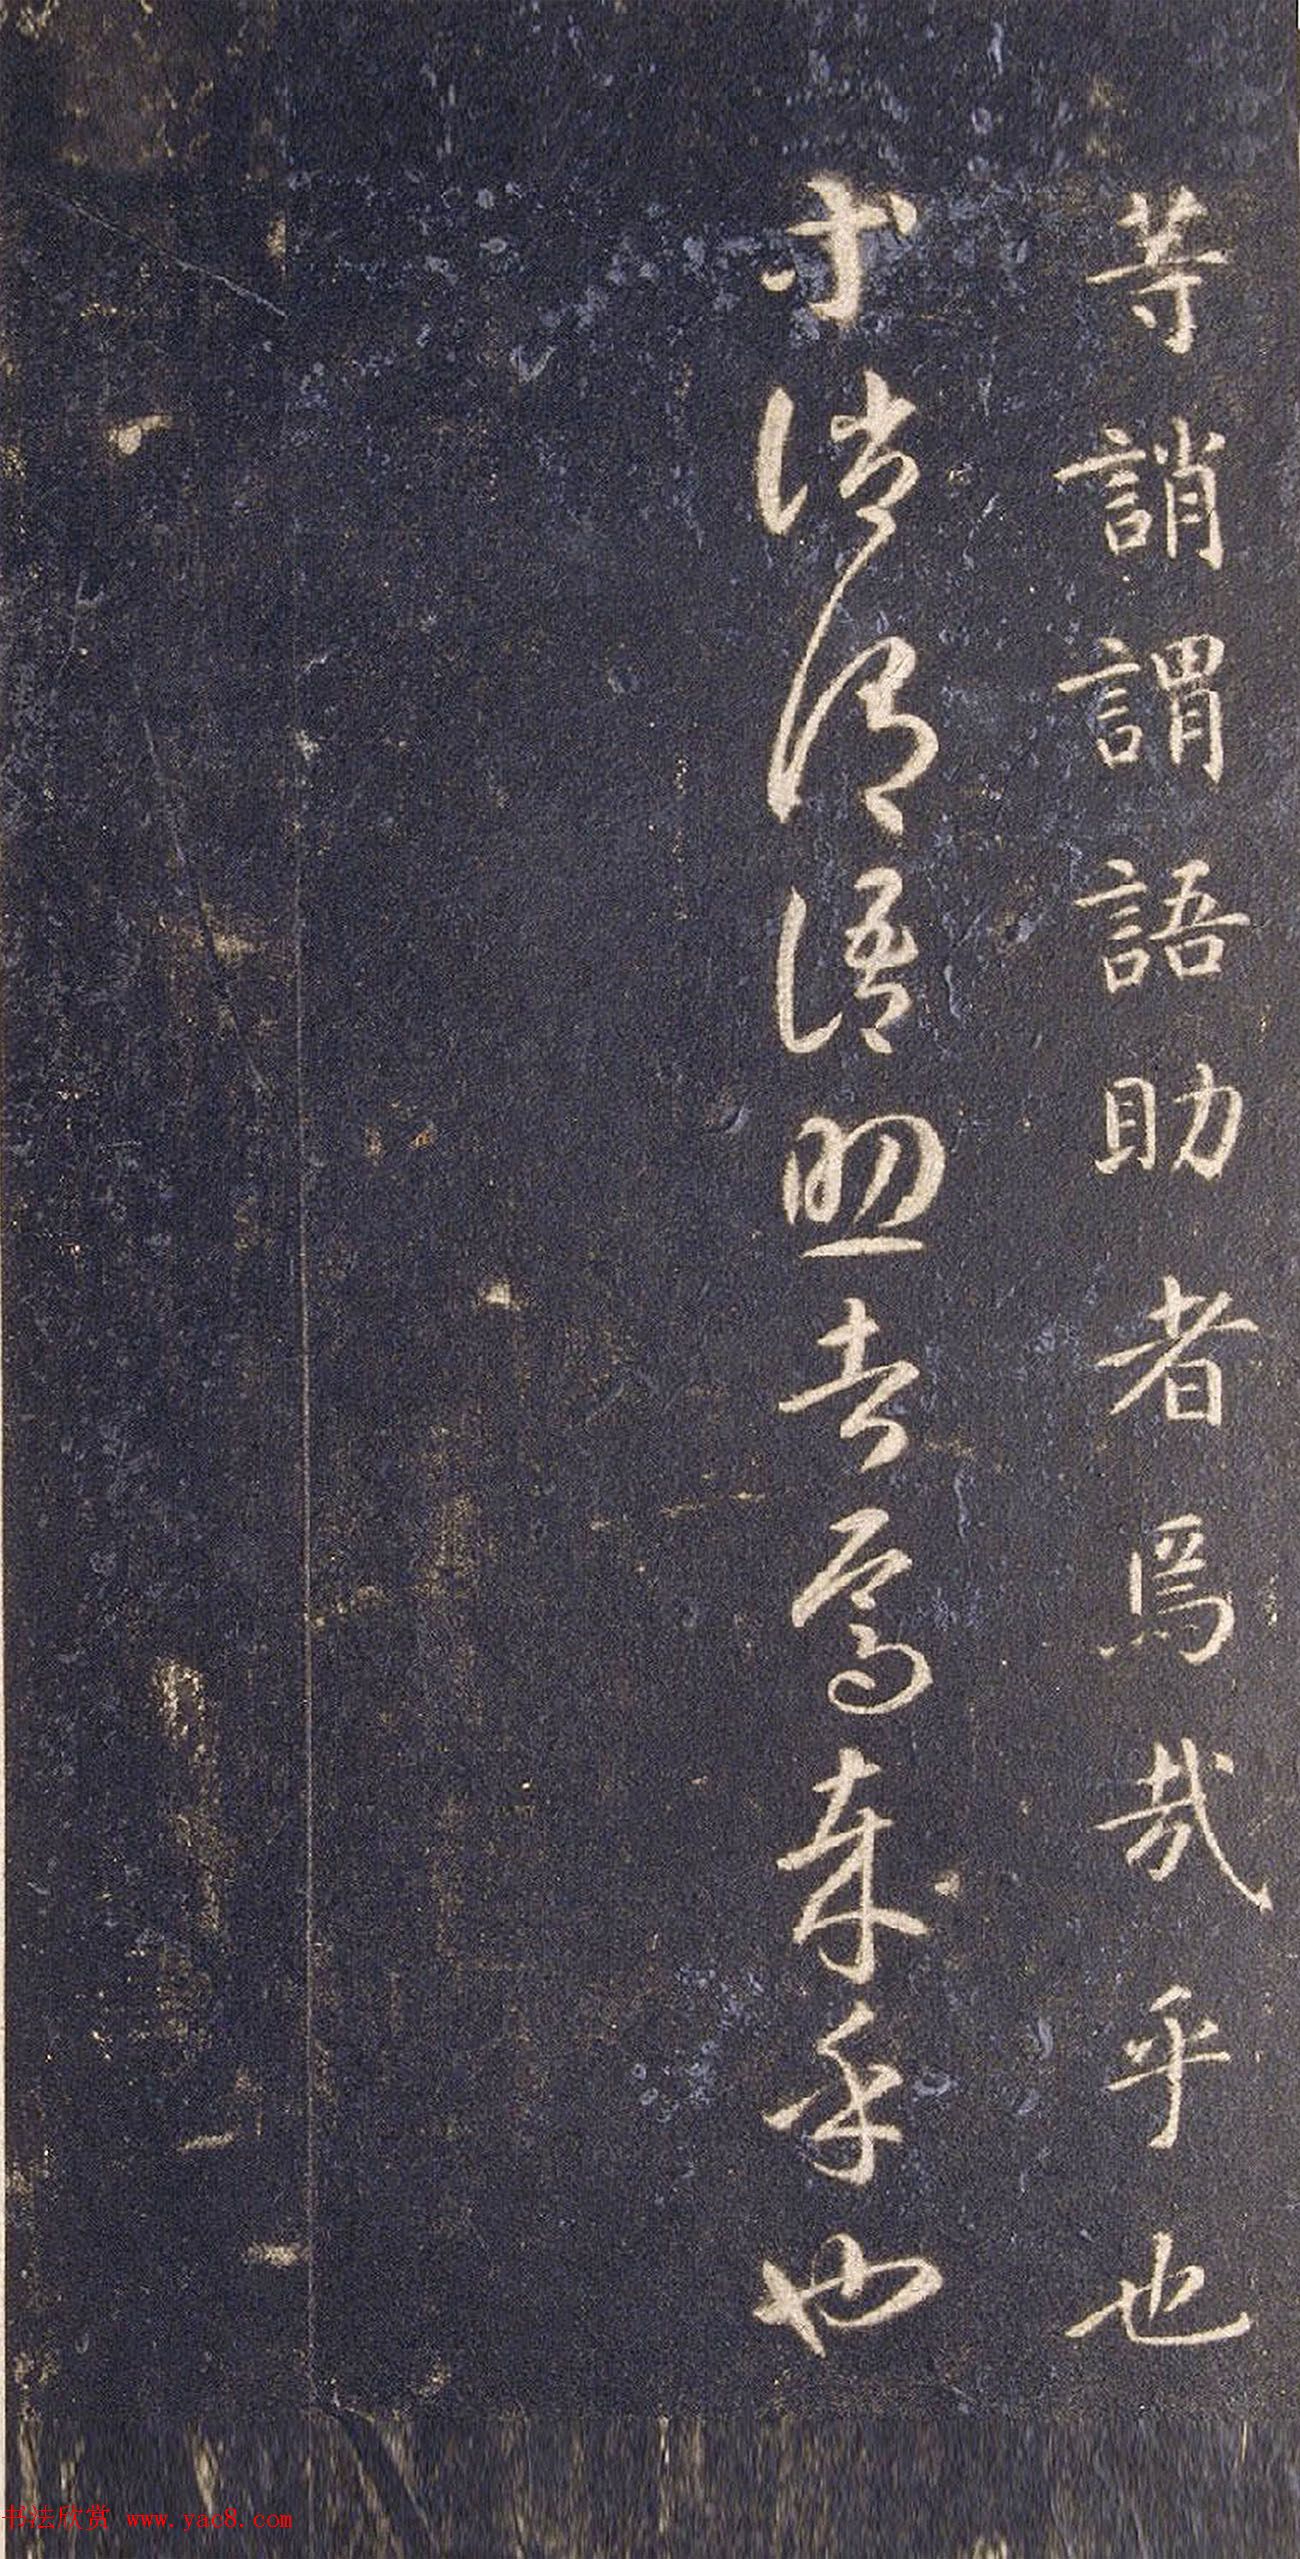 等誚謂語助者焉哉乎也
等誚謂語助者焉哉乎也
书法欣赏 www.yac8.com